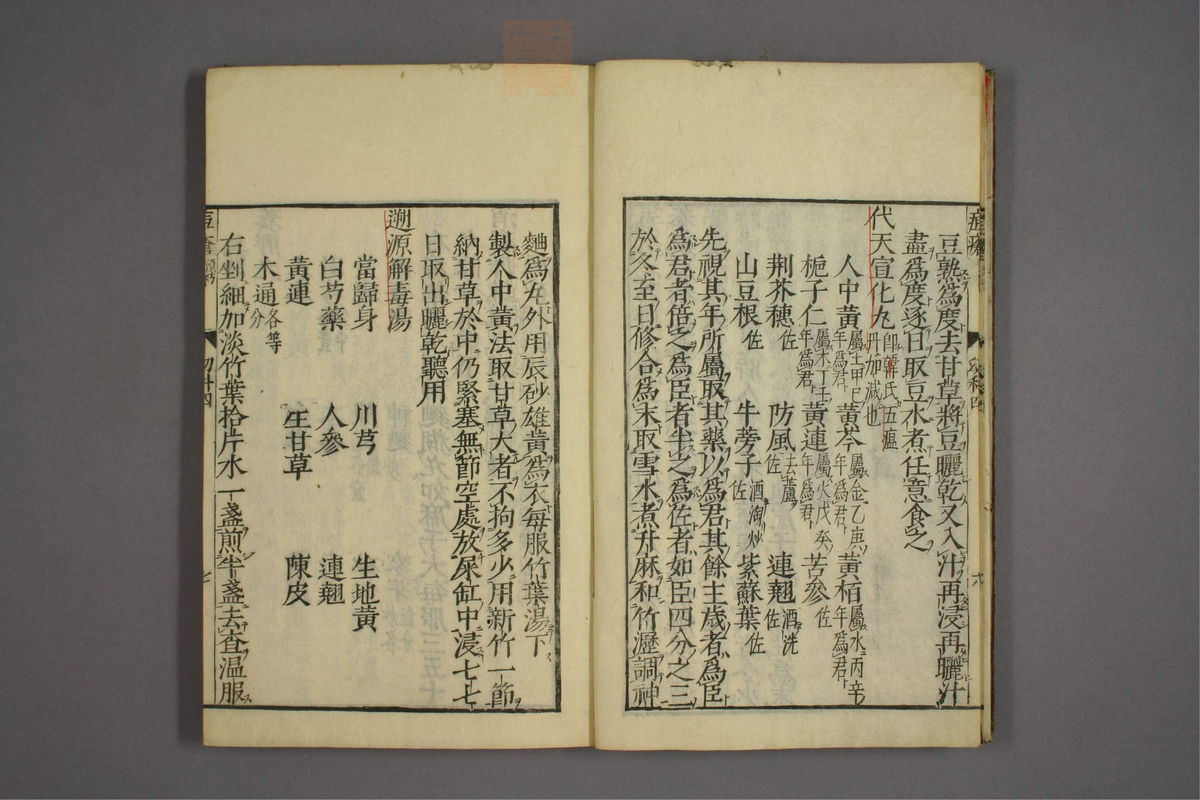 豆熟爲度去甘草將豆曬乾又入汁再浸再曬汁
盡爲度逐日取豆水煮任意食之
代天宣化丸 即韓氏五瘟丹加減也
人中黃 屬土甲己年爲君 黃芩 屬金乙庚年爲君 黃栢 屬水丙辛年爲君
梔子仁 屬木丁壬年爲君 黃連 屬火戊癸年爲君 苦參 佐
荆芥穗 佐 防風 去蘆佐 連翹 酒洗佐
山豆根 佐 牛蒡子 酒淘炒佐 紫蘇葉 佐
先視其年所屬取其藥以爲君其餘主歲者爲臣
爲君者倍之爲臣者半之爲佐者如臣四分之三
於冬至日修合爲末取雪水煮升麻和竹瀝調神
麯爲丸外用辰砂雄黃爲衣每服竹葉湯下
製人中黃法取甘草大者不拘多少用新竹一節
納甘草於中仍緊塞無節空處放屎缸中浸七七
日取出曬乾聽用
遡源解毒湯
當歸身 川芎 生地黃
白芍藥 人參 連翹
黃連 生甘草 陳皮
木通 各等分
右剉細加淡竹葉拾片水一盞煎半盞去查温服